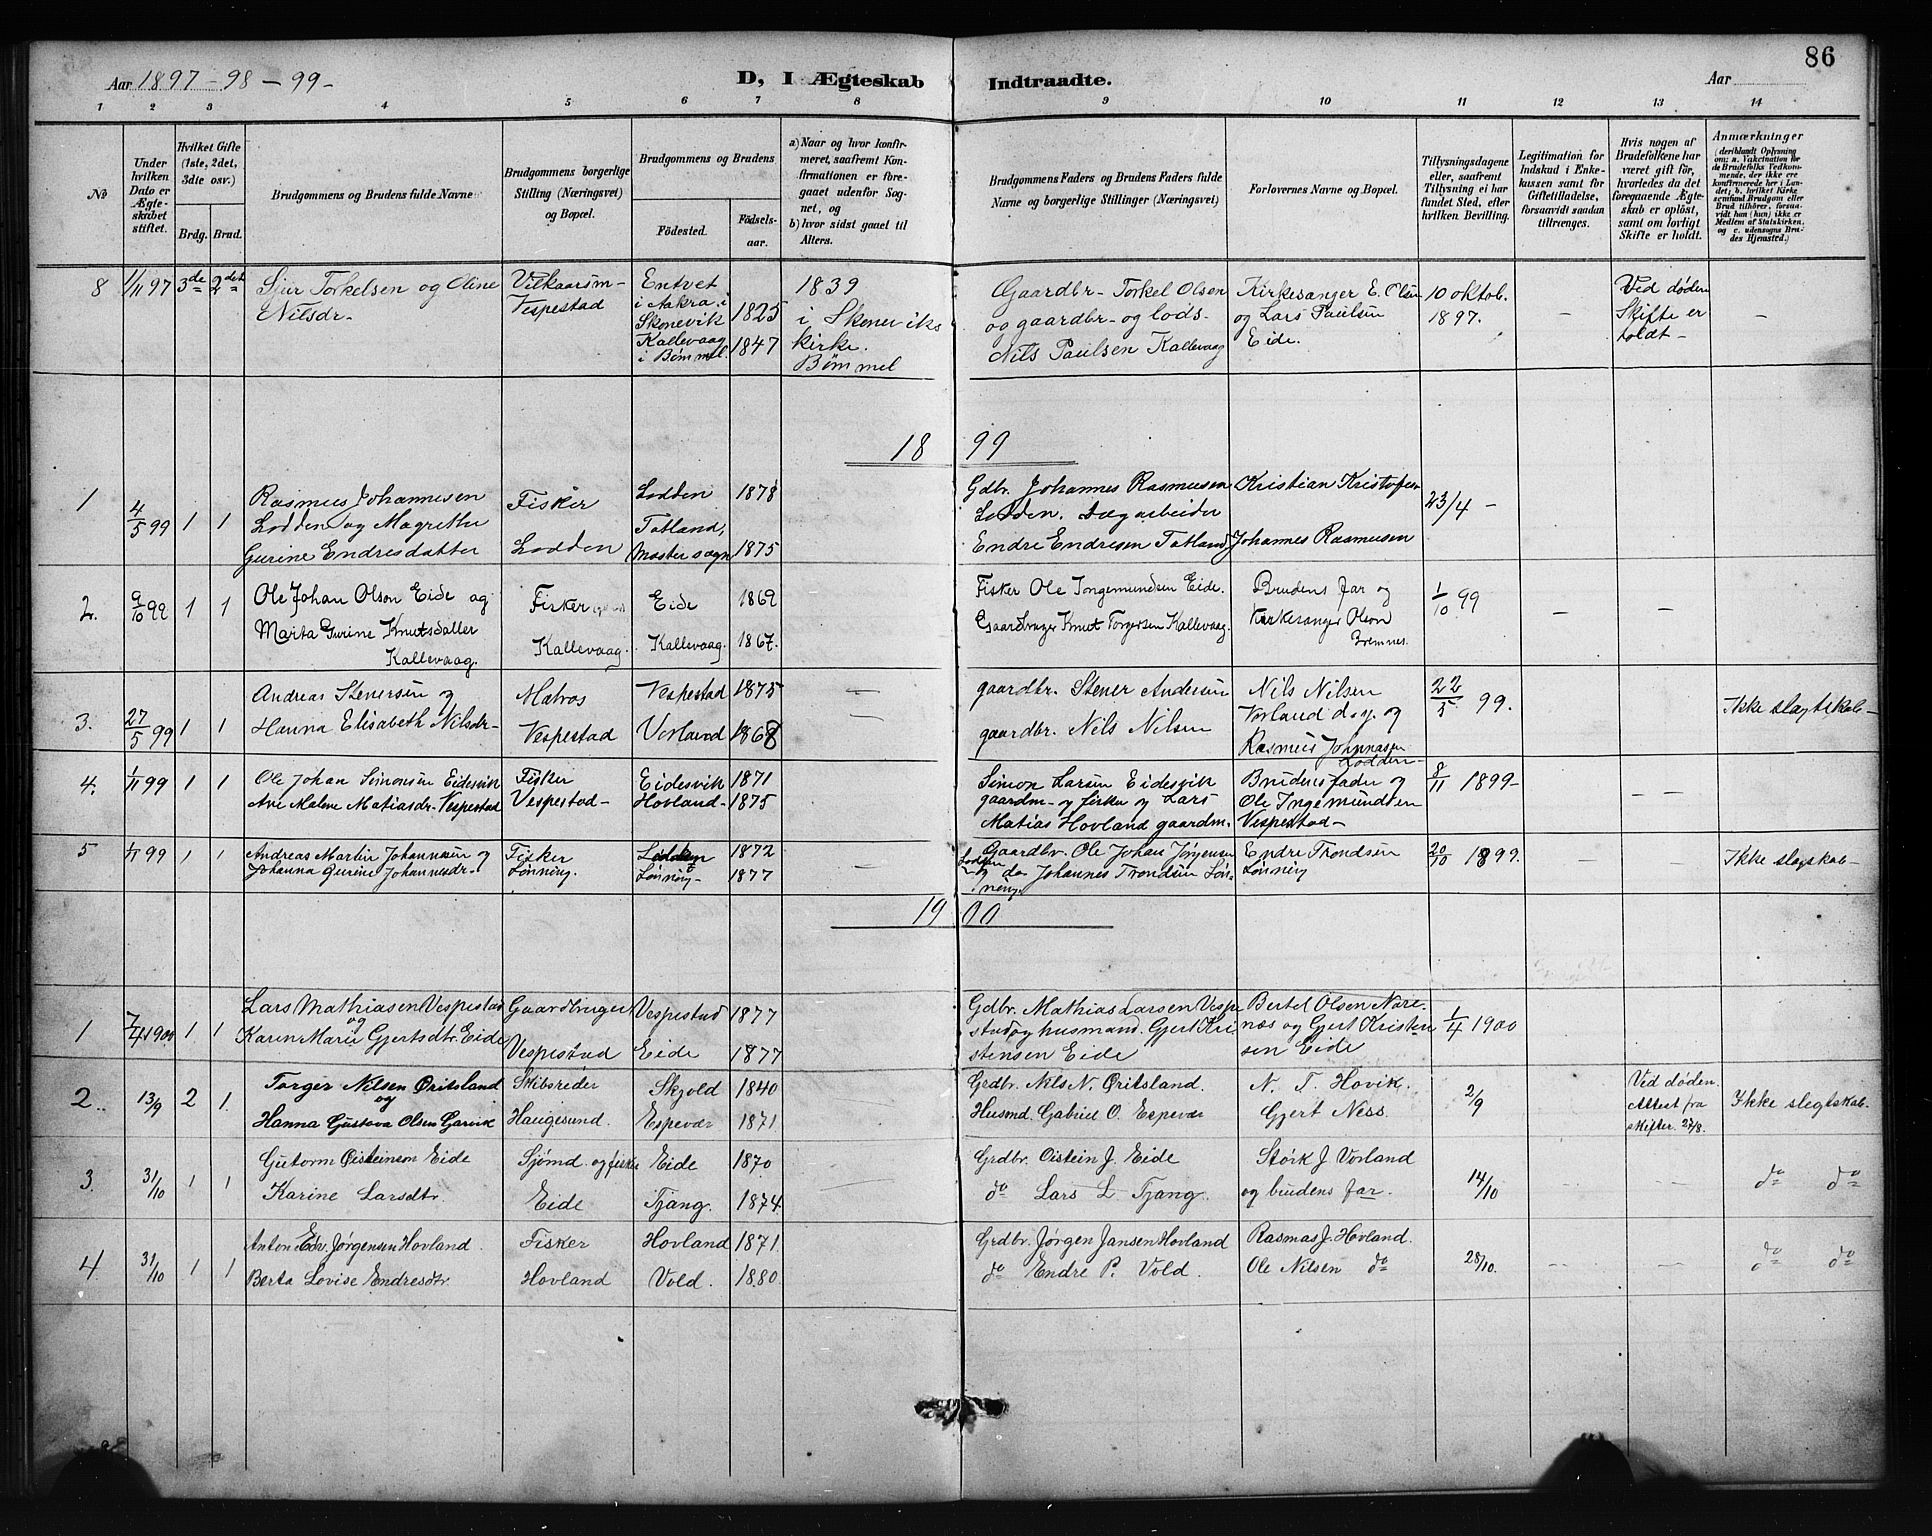 86
Aar 1897-98-99-
D, I Ægteskab Indtraadte.
Aar
1 2 3 4 5 6 7 8 9 10 11 12 13 14
No
Under hvilken Dato er Ægteskabet stiftet.
Hvilket Gifte (1ste, 2det, 3die osv.)
Brdg. Brud.
Brudgommens og Brudens fulde Navne
Brudgommens borgerlige Stilling (Næringsvei) og Bopæl.
Brudgommens og Brudens
Födested. Födsels-aar.
a) Naar og hvor konfirmeret, saafremt Konfirmationen er foregaaet udenför Sognet, og
b) hvor sidst gaaet til Alters.
Brudgommens Faders og Brudens Faders fulde Navne og borgerlige Stillinger (Næringsvei)
Forlovernes Navne og Bopæl.
Tillysningsdagene eller, saafremt Tillysning ei har fundet Sted, efter hvilken Bevilling.
Legitimation for Indskud i Enkekassen samt for Giftetilladelse, forsaavidt saadan tiltrænges.
Hvis nogen af Brudefolkene har været gift för, hvorledes da det foregaaende Ægteskab er oplöst, samt om lovligt Skifte er holdt.
Anmærkninger
8 1/11 97 3de 2det Sjur Torkelsen og Oline Nilsdr- Vilkaarsm- Vespestad
Entvet i Aakra i Skonevik 1825
Kallevaag i Bømmel 1847
1839 i Skoneviks kirke. Bømmel
Gaardbr- Torkel Olsen og gaardbr- og lods- Nils Paulsen Kallevaag
Kirkesanger E. Olsen og Lars Paulsen Eide.
10 oktob. 1897. - Ved døden Skifte er holdt- -
1899
1 4/5 99 1 1 Rasmus Johannesen Lodden og Magrethe Gurine Endresdatter
Fisker Lodden
Lodden 1878
Totland, Moster sogn 1875
Gdbr. Johannes Rasmusen Lodden. Dagarbeider Endre Endresen Totland
Kristian Kristofer
Johannes Rasmusen
23/4 -
2. 9/10 99 1 1 Ole Johan Olson Eide og Marta Gurine Knutsdatter Kallevaag.
Fisker Kallevaag.
Eide 1869
Kallevaag. 1867.
Fisker Ole Ingemundsen Eide.
Gaardbruger Knut Torgersen Kallevaag.
Brudens far og Kirkesanger Olson Bremnes.
1/10 99 - -
3. 27/5 99 1 1 Andreas Stenersen og Hanna Elisabeth Nilsdr-
Matros Vespestad
Vespestad 1875 -
Vorland 1868 -
gaardbr. Stener Andersen
gaardbr. Nils Nilsen
Nils Nilsen Vorland og Rasmus Johannasen Lodden-
22/5 99. Ikke slagtskab-
4. 1/11 99 1 1 Ole Johan Simonsen Eidesvik
Ane Malene Matiasdr- Vespestad
Fisker Vespestad-
Eidesvik 1871
Hovland- 1875
Simon Larsen Eidesvik gaardm- og fisker og Lars Matias Hovland gaardm.
Brudens fader og Ole Ingemundsen Vespestad-
8/11 1899- - -
5 1/1 99 1 1 Andreas Martin Johannesen og Johanna Gurine Johannesdr-
Fisker Lønning.
Lodden 1872
Lønning- 1877 -
Gaardbr. Ole Johan Jørgensen Lodden og do Johannes Trondsen Lønning.
Endre Trondsen Lønning
20/10 1899. - - Ikke slegskab-
1900
1 7/4 1900 1 1 Lars Mathiasen Vespestad og Karen Marie Gjertsdtr. Eide
Gaardbruger Vespestad
Vespestad 1877
Eide 1877
Gdbr. Mathias Larsen Vespestad og husmand. Gjert Kristensen Eide
Bertel Olsen Norenes og Gjert Kristensen Eide
1/4 1900
2. 13/9 2 1. Torger Nilsen Øritsland og Hanna Gustava Olsen Garvik
Skibsreder Haugesund.
Skjold 1840
Espevær 1871
Grdbr. Nils N. Øritsland.
Husmd. Gabriel O. Espevær
N. T. Hovik.
Gjert Ness.
2/9 Ved døden. Attest fra skifter. 27/8. Ikke slegtskab.
3. 31/10 1 1 Gutorm Øisteinson Eide
Karine Larsdtr.
Sjømd. og fisker Eide
Eide 1870
Tjang. 1874.
Grdbr. Oistein J. Eide
do Lars L. Tjang.
Størk J. Vorland og brudens far.
14/10 -- -- do do
4 31/10 1 1 Anton Edv. Jørgensen Hovland.
Berta Lovise Endresdtr.
Fisker Hovland
Hovland 1871.
Vold. 1880
Grdbr. Jørgen Jansen Hovland
do Endre P. Vold.
Rasmus J. Hovland.
Ole Nilsen do
28/10. -- -- do do